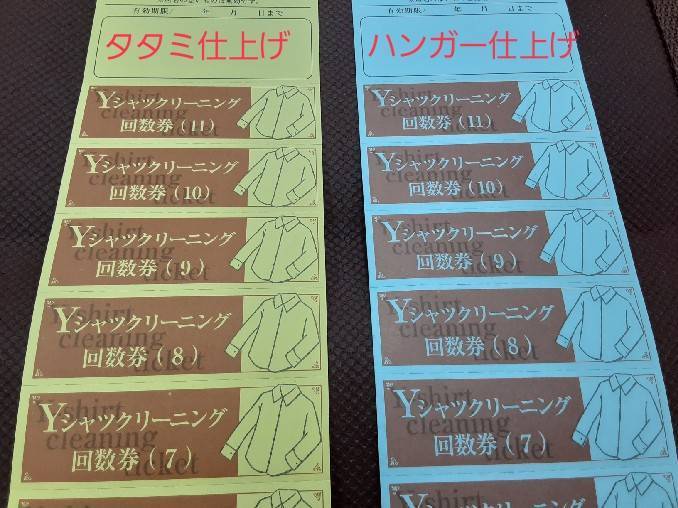 有効期限/ 年 月 日まで
タタミ仕上げ
Yシャツクリーニング
回数券(11)
Yシャツクリーニング
回数券(10)
Yシャツクリーニング
回数券(9)
Yシャツクリーニング
回数券(8)
Yシャツクリーニング
回数券(7)
有効期限/ 年 月 日まで
ハンガー仕上げ
Yシャツクリーニング
回数券(11)
Yシャツクリーニング
回数券(10)
Yシャツクリーニング
回数券(9)
Yシャツクリーニング
回数券(8)
Yシャツクリーニング
回数券(7)